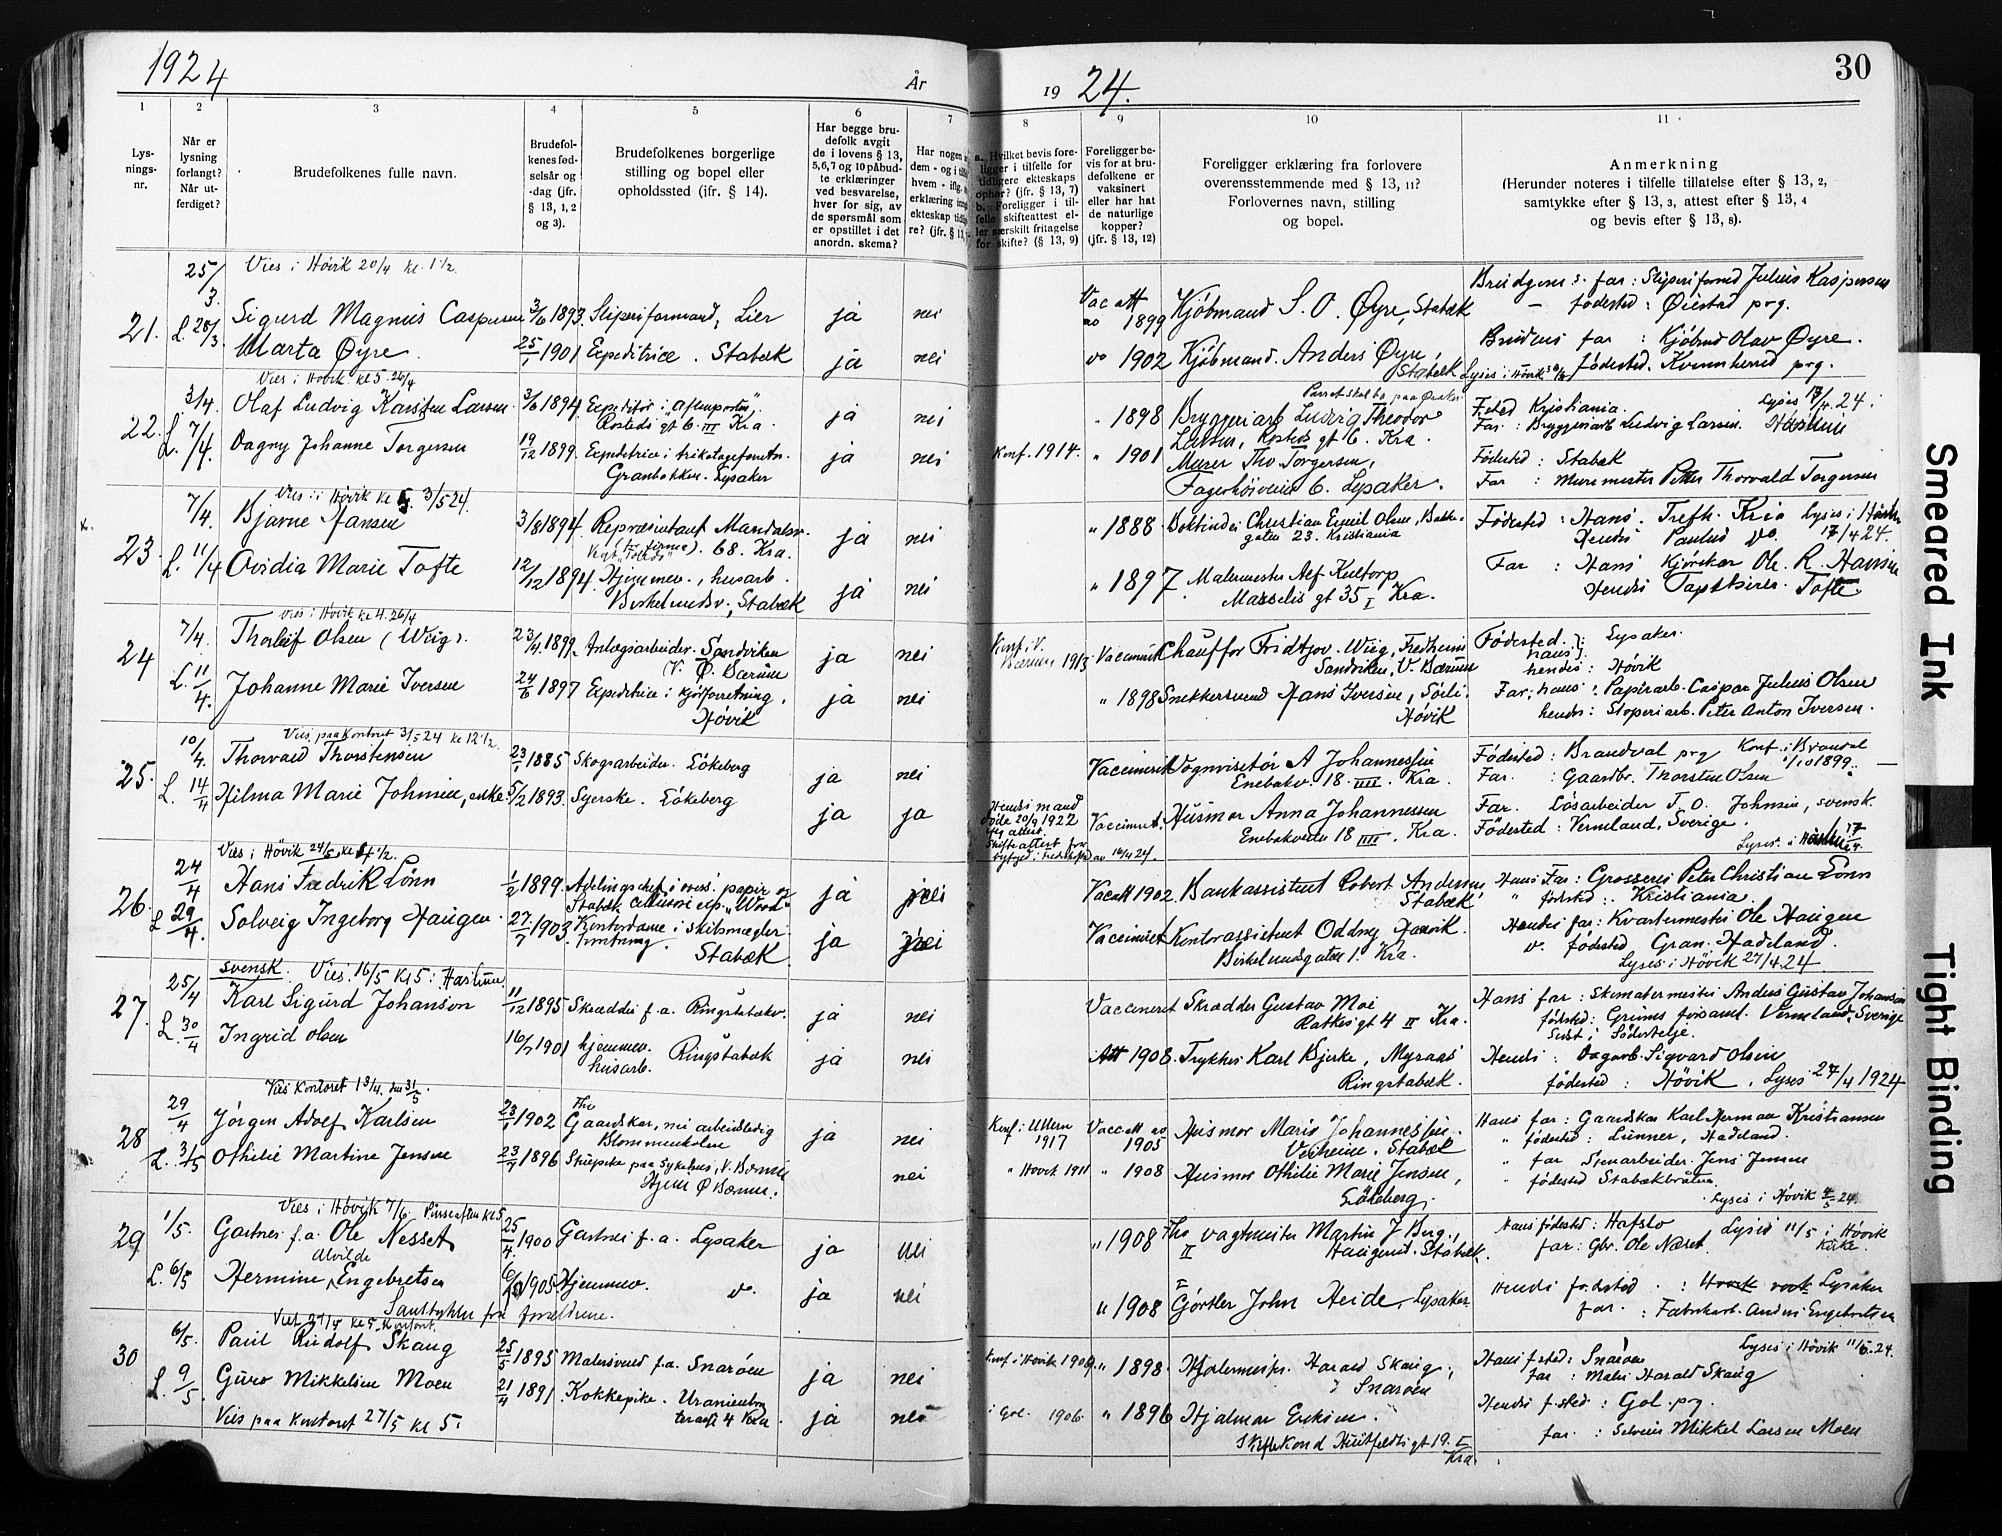 1924
År
19 24.
30
1
2
3
4
5
6
7
8
9
10
11
Lys-
nings-
nr.
Når er
lysning
forlangt?
Når ut-
ferdiget?
Brudefolkenes fulle navn.
Brudefol-
kenes fød-
selsår og
-dag (jfr.
§ 13, 1, 2
og 3).
Brudefolkenes borgerlige
stilling og bopel eller
opholdssted (jfr. § 14).
Har begge bru-
defolk avgit
de i lovens § 13,
5, 6, 7 og 10 påbud-
te erklæringer
ved besvarelse,
hver for sig, av
de spørsmål som
er opstillet i det
anordn. skema?
Har nogen
dem - og i
hvem - iflg.
erklæring
ekteskap
re? (jfr. § 13,
a. Hvilket bevis fore-
ligger i tilfelle for
tidligere ekteskaps
ophør? (jfr. § 13, 7)
b. Foreligger i til-
felle skifteattest el-
ler særskilt fritagelse
for skifte? (§ 13, 9)
Foreligger be-
vis for at bru-
defolkene er
vaksinert
eller har hat
de naturlige
kopper?
(jfr. § 13, 12)
Foreligger erklæring fra forlovere
overensstemmende med § 13, 11?
Forlovernes navn, stilling
og bopel.
Anmerkning
(Herunder noteres i tilfelle tillatelse efter § 13, 2,
samtykke efter § 13, 3, attest efter § 13, 4
og bevis efter § 13, 8).
25/3.
Vies i Høvik 20/4 kl. 1 1/2.
21. L. 28/3 Sigurd Magnus Caspersen 3/6 1893. Sliperiformand, Lier ja nei
Marta Øyre. 25/1 1901 Expeditrice. Stabæk ja nei
Vac att no 1899 Kjøbmand S. O. Øyre, Stabæk
vo 1902 Kjøbmand. Anders Øyre, Stabæk
Brudgoms far: Sliperiformd Julius Kaspersen
— fødested: Øiestad prg.
Brudens far: Kjøbmd Olav Øyre.
Lyses i Høvik 30/3 fødested. Kvinnherred prg.
Vies i Høvik kl 5. 26/4
22. 3/4. Olaf Ludvig Karsten Larsen. 3/6 1894. Expeditør i "Aftenposten". ja nei
Rosteds gt 6 III Kra.
L. 7/4. Dagny Johanne Torgersen 19/12 1899. Expeditrice i trikotageforretn. ja nei
Granbakken. Lysaker
" 1898 Bryggeriarb Ludvig Theodor
Larsen, Rosteds gt 6. Kra.
Konf. 1914. " 1901 Murer Tho Torgersen,
Fagerhøiveien 6. Lysaker.
F.sted Kristiania. Lyses 13/4. 24 i
Far: Bryggeriarb Ludvig Larsen. Haslum
Fødested: Stabæk
Far: Murmester Peter Thorvald Torgersen
Vies i Høvik kl 5. 3/5 24.
23. 7/4. Bjarne Jansen 3/8 1894. Repræsentant Mandalsv. ja nei
68. Kra.
L. 11/4 Ovidia Marie Tofte 12/12 1894. Hjemmev., husarb. ja nei
Birkelundsv., Stabæk
" 1888 Bokbinder Christian Emil Olsen, Bakke-
gaten 23. Kristiania
" 1897. Malermester Alf Kultorp
Marselis gt 35 I Kra.
Fødested: Hans. Trefk. Kria Lyses i Haslum
Hendes Paulus do. 17/4 24.
Far: Hans Kjørekar Ole. R. Hansen
Hendes Tapetserer Tofte.
Vies i Høvik kl 4. 26/4
24 7/4. Thorleif Olsen (Wiig). 23/4. 1899. Anlægsarbeider. Sandviken ja nei
V. Ø. Bærum
L. 11/4. Johanne Marie Iversen 24/6 1897 Expeditrice i kjøtforretning, ja nei
Høvik
Konf. i V. Bærum 1913 Vaccineret Chauffør Fridtjov Wiig, Fredheim
Sandviken, V. Bærum
" 1898 Snekkersvend Hans Iversen, Solli.
Høvik
Fødested. hans: Lysaker.
hendes: Høvik
Far, hans: Papirarb. Caspar Julius Olsen
hendes: Støperiarb. Peter Anton Iversen.
Vies paa Kontoret 3/5 24 kl 12 1/2.
25. 10/4. Thorvald Thorstensen 23/1 1885 Skogsarbeider. Løkeberg ja nei
L. 14/4 Hilma Marie Johnsen, enke. 5/2 1893. Syerske. Løkeberg ja ja
Vaccineret Vognvisitør A Johannessen
Enebakv. 18 IIII. Kra.
Hendes mand døde 20/9 1922 Vaccineret. Husmor Anna Johannessen
Enebakveien 18 III. Kra.
Fødested: Brandval prg Konf. i Brandval
Far.: Gaardbr. Thorsten Olsen 1/10 1899.
Far. Løsarbeider T. O. Johnsen, svensk.
Fødested: Vermland, Sverige.
Vies i Høvik 24/5, kl 1/2.
26. 24/4 Hans Fredrik Lønn 1/2 1899. Avdelingschef i overs. papir og ja nei
Stabæk cellulose exp. "Wood"
L 29/4. Solveig Ingeborg Haugen 27/7 1903 Kontordame i skibsmægler- ja nei
forretning. Stabæk
Vac att 1902. Bankassistent Robert Andersen,
Stabæk
Vaccineret Kontorassistent Oddny Hauvik.
Birkelundsgaten 1. Kra.
Hans Far: Grosserer Peter Christian Lønn
" fødested:. Kristiania.
Hendes far: Kvartermester Ole Haugen
v. fødested, Gran. Hadeland.
Lyses i Høvik 27/4. 24
svensk. Vies. 16/5 Kl 5: Haslum
27. 25/4 Karl Sigurd Johanson 11/12 1895 Skrædder f. a. Ringstabækv. ja nei
L. 30/4 Ingrid Olsen 16/7 1901 hjemmev. husarb. Ringstabæk ja nei
Vaccineret Skrædder Gustav Moe
Ratkes gt 4 II Kra.
Att 1908. Trykker Karl Bjerke, Myraas
Ringstabæk.
Hans far: Skomakermester Anders Gustav Johanson
fødested: Grums forsaml. Vermland, Sverige
Sidst: Södertelje
Hendes: Dagarb. Sigvard Olsen
fødested: Høvik. Lyses 27/4 1924
Vies Kontoret
28 29/4 Jørgen Adolf Karlsen 23/1 1902 Gaardskar, nu arbeidsledig ja nei
Blommenholm
L. 3/5 Othilie Martine Jensen 23/7 1896 Sykepleierske paa Sykehus, V. Bærum nei
Hjem Ø Bærum.
Konf. i Ullern 1917 Vac att no 1905 Husmor Marie Johannessen.
Veiheim. Stabæk
" Høvik 1911 " 1908 Husmor Othilie Marie Jensen,
Løkeberg.
Hans far: Gaardskar Karl Herman Kristiansen
" fødested: Lunner, Hadeland.
" far Stenarbeider Jens Jensen
" fødested Stabækbraaten
Lyses i Høvik 4/5 24.
Vies i Høvik 7/6 Pinseaften kl 5
29 1/5. Gartner f. a. Ole Nesset 25/4. 1900 Gartner f. a. Lysaker ja nei
Alvilde
L. 6/5 Hermine Engebretsen 6/10 1905 Hjemmev. do. ja nei
Samtykke fra forældrene.
" 1908 Tho vagtmester Martin J Berg,
Haugenst. Stabæk.
" 1908 Gjørtler John Heide, Lysaker
Hans fødested: Hafslo Lyses 11/5 i Høvik
far: Gbr. Ole Næset kirke.
Hendes fødested.: Lysaker
far.: Fabrikarb. Anders Engebretsen
Viet 27/5 kl 5 Kontoret.
30 6/5. Paul Rudolf Skaug 25/5 1895 Malersvend f. a. Snarøen ja nei
L. 9/5. Guro Mikkelsen Moen 21/4 1891. Kokkepike. Uranienborg ja nei
terasse 4 Kra.
Vies paa Kontoret 27/5 kl 5.
Konf. i Høvik 1909 " 1898. Malermester. Harald Skaug,
Snarøen
i Gol. 1906 " 1896 Hjalmar Eriksen.
Skibskond Huitfeldts gt 19. I Kra.
Hans f.sted: Snarøen Lyses i Høvik 11/5. 24.
far: Maler Harald Skaug
Hendes f.sted: Gol. prg.
far.: Selveier Mikkel Larsen Moen
Smeared Ink
Tight Binding